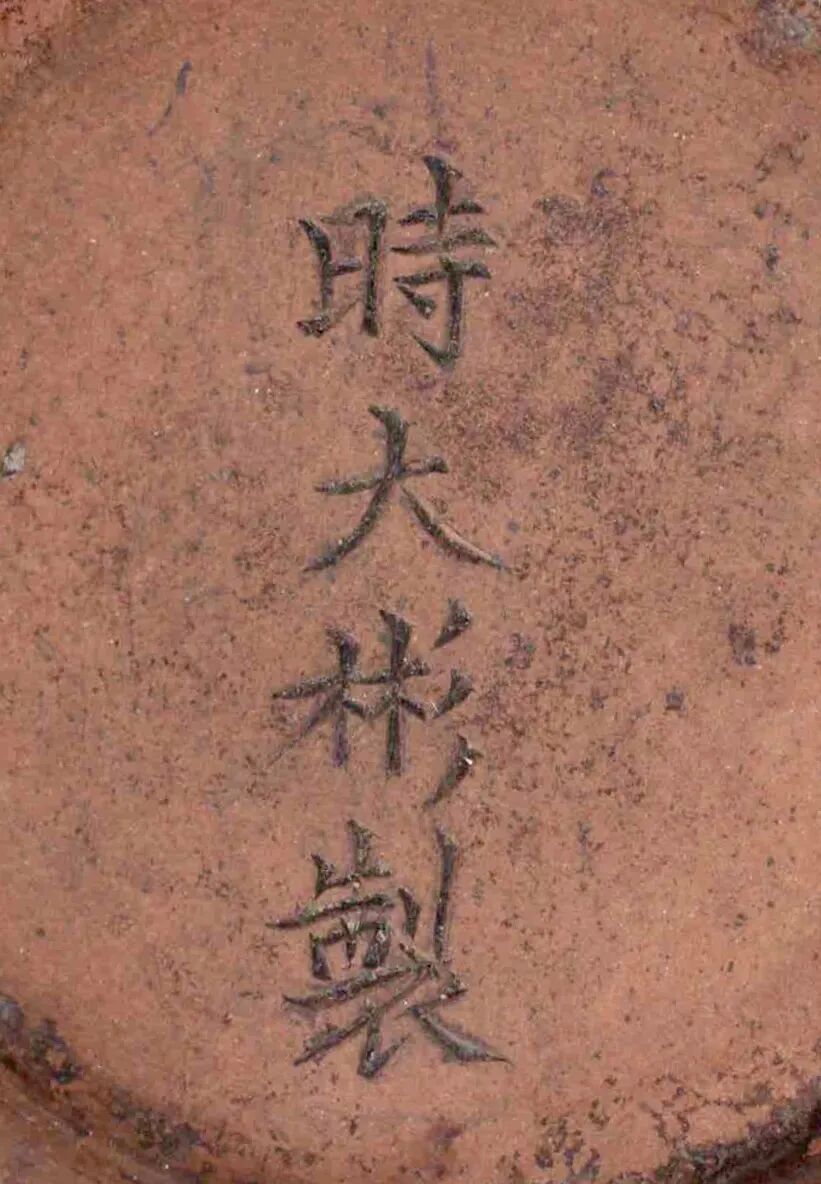 時大彬製